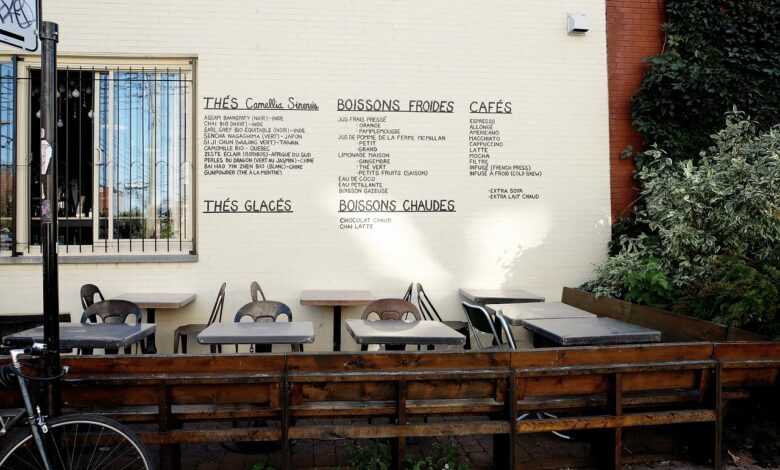 THÉS Camellia Sinensis
ASSAM BANASPATY (NOIR) - INDE
CHAI BIO (NOIR) - INDE
EARL GREY BIO ÉQUITABLE (NOIR) - INDE
SENCHA NAGASHIMA (VERT) - JAPON
SI JI CHUN (WULONG VERT) - TAIWAN
CAMOMILLE BIO - QUEBEC
ZESTE ÉCLAIR (ROOIBOS) - AFRIQUE DU SUD
PERLES DU DRAGON (VERT AU JASMIN) - CHINE
BAI HAO YIN ZHEN BIO (BLANC) - CHINE
GUNPOWDER (THÉ À LA MENTHE)
THÉS GLACÉS
BOISSONS FROIDES
JUS FRAIS PRESSÉ
- ORANGE
- PAMPLEMOUSSE
JUS DE POMME DE LA FERME MCMILLAN
- PETIT
- GRAND
LIMONADE MAISON
- GINGEMBRE
- THÉ VERT
- PETITS FRUITS (SAISON)
EAU DE COCO
EAU PÉTILLANTE
BOISSON GAZEUSE
BOISSONS CHAUDES
CHOCOLAT CHAUD
CHAI LATTE
CAFÉS
ESPRESSO
ALLONGÉ
AMERICANO
MACCHIATO
CAPPUCCINO
LATTE
MOCHA
FILTRE
INFUSÉ (FRENCH PRESS)
INFUSÉ À FROID (COLD BREW)
- EXTRA SOYA
- EXTRA LAIT CHAUD